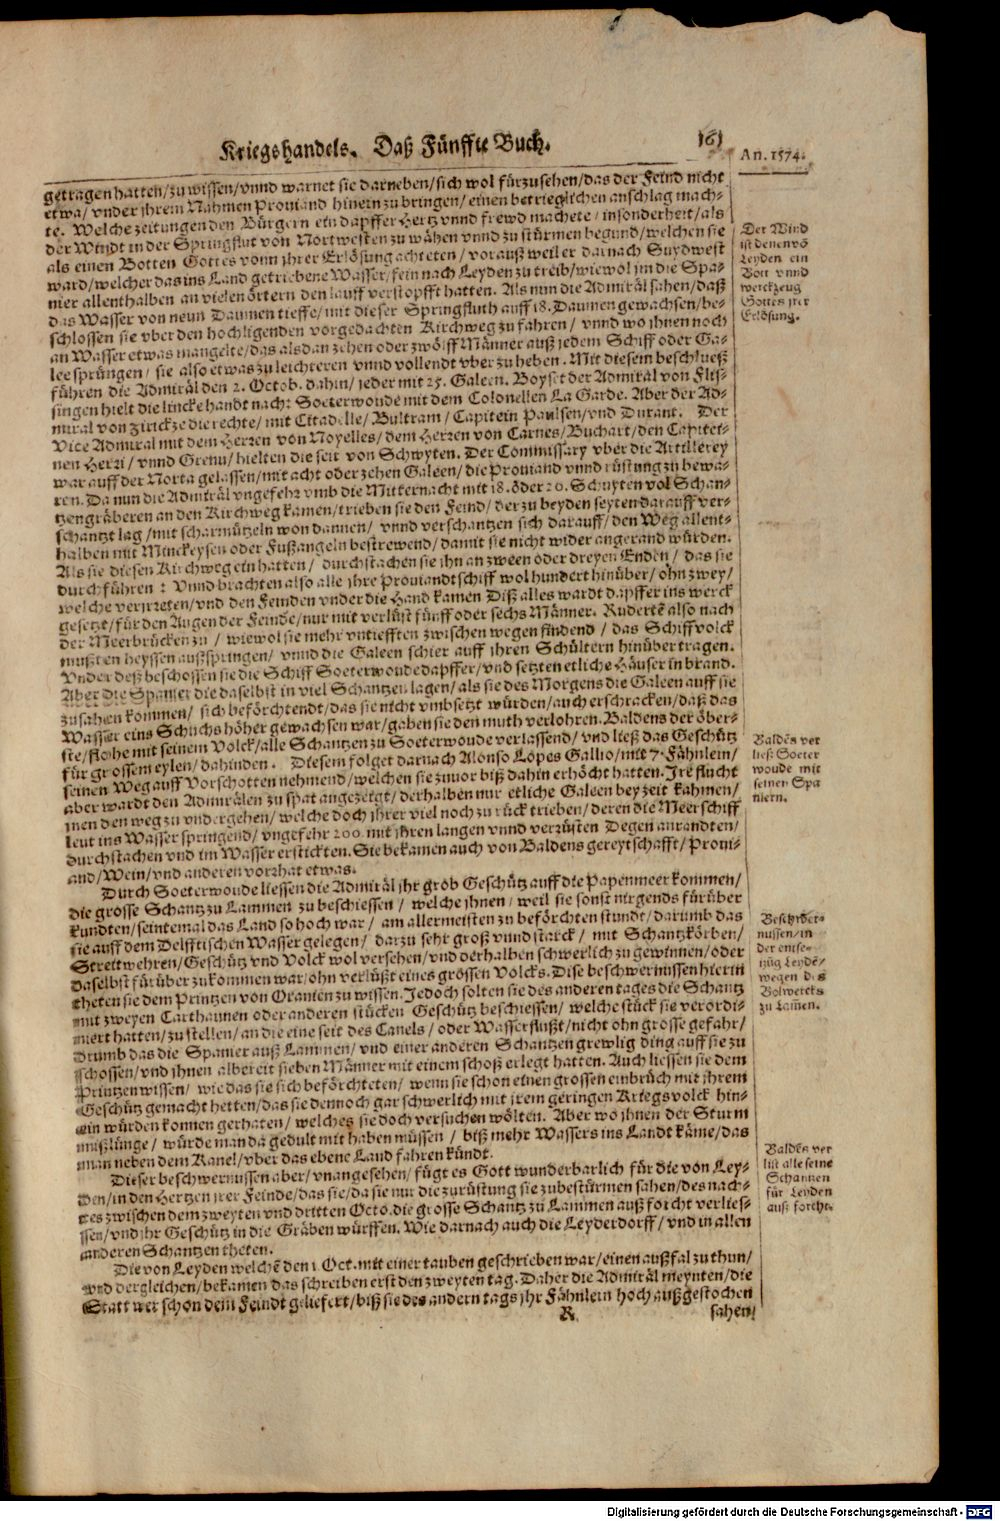 Kriegshandels. Daß Fünffte Buch. 161
An. 1574.
getragen hatten/ zu wissen/ vnnd warnet sie darneben/ sich wol fürzusehen/ das der Feind nicht
etwa/ vnder jhrem Nahmen Prouiand hinein zu bringen/ einen betrieglichen anschlag mach-
te. Welche zeitungen den Bürgern ein dapffer Hertz vnnd frewd machete/ insonderheit/ als
der Windt in der Springflut von Nortwesten zu wähen vnnd zu stürmen begund/ welchen sie
als einen Botten Gottes vonn jhrer Erlösung achteten/ vorauß weil er darnach Suydwest
ward/ welcher das ins Land getriebene Wasser/ fein nach Leyden zu treib/ wiewol jm die Spa-
nier allenthalben an vielen örtern den lauff verstopfft hatten. Als nun die Admiräl sahen/ daß
das Wasser von neun Daumen tieffe/ mit dieser Springfluth auff 18. Daumen gewachsen/ be-
schlossen sie vber den hochligenden vorgedachten Kirchweg zu fahren/ vnnd wo jhnen noch
an Wasser etwas mangelte/ das alsdan zehen oder zwölff Männer auß jedem Schiff oder Ga-
lee sprüngen/ sie also etwas zu leichteren vnnd vollendt vber zu heben. Mit diesem beschlueß
führen die Admiräl den 2. Octob. dahin/ jeder mit 25. Galeen. Boyset der Admiral von Flis-
singen hielt die lincke handt nach: Soeterwoude mit dem Colonellen La Garde. Aber der Ad-
miral von Zirckze die rechte/ mit Citadelle/ Bultram/ Capitein Paulsen/ vnd Durant. Der
Vice Admiral mit dem Herren von Noyelles/ dem Herren von Carnes/ Buchart/ den Capitei-
nen Herri/ vnnd Grenu/ hielten die seit von Schwyten. Der Commissary vber die Artillerey
war auff der Norta gelassen/ mit acht oder zehen Galeen/ die Prouiand vnnd rüstung zu bewa-
ren. Da nun die Admiräl vngefehr vmb die Mitternacht mit 18. oder 20. Schuyten vol Schan-
tzengräberen an den Kirchweg kamen/ trieben sie den Feind/ der zu beyden seyten darauff ver-
schantzt lag/ mit scharmützeln von dannen/ vnnd verschantzen sich darauff/ den Weg allent-
halben mit Minckeysen oder Fußangeln bestrewend/ damit sie nicht wider angerand würden.
Als sie diesen Kirchweg ein hatten/ durchstachen sie jhn an zween oder dreyen Enden/ das sie
durch führen: Vnnd brachten also alle jhre Prouiandtschiff wol hundert hinüber/ ohn zwey/
welche verjrreten/ vnd den Feinden vnder die Hand kamen Diß alles wardt dapffer ins werck
gesetzt/ für den Augen der Feinde/ nur mit verlüst fünff oder sechs Männer. Ruderte͂ also nach
der Meerbrücken zu/ wiewol sie mehr vntiefften zwischen wegen findend/ das Schiffvolck
mußten heyssen außspringen/ vnnd die Galeen schier auff jhren Schültern hinüber tragen.
Vnder deß beschossen sie die Schiff Soeterwoude dapffer/ vnd setzten etliche Häuser in brand.
Aber die Spanier die daselbst in viel Schantzen lagen/ als sie des Morgens die Galeen auff sie
zu sahen kommen/ sich beförchtendt/ das sie nicht vmbsetzt würden/ auch erschracken/ daß das
Wasser eins Schuchs höher gewachsen war/ gaben sie den muth verlohren. Baldens der öber-
ste/ flohe mit seinem Volck/ alle Schantzen zu Soeterwoude verlassend/ vnd ließ das Geschütz
für grossem eylen/ dahinden. Diesem folget darnach Alonso Lopes Gallio/ mit 7. Fähnlein/
seinen Weg auff Vorschotten nehmend/ welchen sie zuuor biß dahin erhöcht hatten. Ire flucht
aber wardt den Admirälen zu spat angezeigt/ derhalben nur etliche Galeen bey zeit kahmen/
jnen den weg zu vndergehen/ welche doch jhrer viel noch zu rück trieben/ deren die Meerschiff
leut ins Wasser springend/ vngefehr 200. mit jhren langen vnnd verrüsten Degen anrandten/
durchstachen vnd im Wasser erstickten. Sie bekamen auch von Baldens gereytschafft/ Proui-
and/ Wein/ vnd anderen vorrhat etwas.
Durch Soeterwoude liessen die Admiräl jhr grob Geschütz auff die Papenmeer kommen/
die grosse Schantz zu Lammen zu beschiessen/ welche jhnen/ weil sie sonst nirgends fürüber
kundten/ seintemal das Land so hoch war/ am allermeisten zu beförchten stundt/ darumb das
sie auff dem Delfftischen Wasser gelegen/ darzu sehr groß vnnd starck/ mit Schantzkörben/
Streitwehren/ Geschütz vnd Volck wol versehen/ vnd derhalben schwerlich zu gewinnen/ oder
daselbst fürüber zukommen war/ ohn verlüst eines grössen Volcks. Dise beschwernussen hierin
theten sie dem Printzen von Oranien zu wissen. Jedoch solten sie des anderen tages die Schantz
mit zweyen Carthaunen oder anderen stücken Geschütz beschiessen/ welche stück sie verordi-
niert hatten/ zu stellen/ an die eine seit des Canels/ oder Wasserflußt/ nicht ohn grosse gefahr/
drumb das die Spanier auß Lammen/ vnd einer anderen Schantzen grewlig ding auff sie zu
schossen/ vnd jhnen albereit sieben Männer mit einem schoß erlegt hatten. Auch liessen sie dem
Printzen wissen/ wie das sie sich beförchteten/ wenn sie schon einen grossen einbrüch mit jhrem
Geschütz gemacht hetten/ das sie dennoch gar schwerlich mit jrem geringen Kriegsvolck hin-
ein würden konnen gerhaten/ welches sie doch versuchen wölten. Aber wo jhnen der Sturm
mißlünge/ würde man da gedult mit haben müssen/ biß mehr Wassers ins Landt käme/ das
man neben dem Kanel/ vber das ebene Land fahren kündt.
Dieser beschwernussen aber/ vnangesehen/ fügt es Gott wunderbarlich für die von Ley-
den/ in den Hertzen jrer Feinde/ das sie/ da sie nur die zurüstung sie zubestürmen sahen/ des nach-
tes zwischen dem zweyten vnd dritten Octo. die grosse Schantz zu Lammen auß forcht verlies-
sen/ vnd jhr Geschütz in die Gräben würffen. Wie darnach auch die Leyderdorff/ vnd in allen
anderen Schantzen theten.
Die von Leyden welche͂ den 1. Oct. mit einer tauben geschrieben war/ einen außfal zu thun/
vnd dergleichen/ bekamen das schreiben erst den zweyten tag. Daher die Admiräl meynten/ die
Statt wer schon dem Feindt geliefert/ biß sie des andern tags jhr Fähnlein hoch außgestochen
R sahen/
Der Wind
ist denen vō
Leyden ein
Bott vnnd
werckzeug
Gottes jrer
Erlösung.
Balde͂s ver
ließ Soeter
woude mit
seinen Spa
niern.
Beschwer-
nussen/ in
der entse-
tzüg Leyde͂/
wegen des
Bolwercks
zu Lam̄en.
Balde͂s ver
list alle seine
Schantzen
für Leyden
auß forcht.
Digitalisierung gefördert durch die Deutsche Forschungsgemeinschaft - DFG